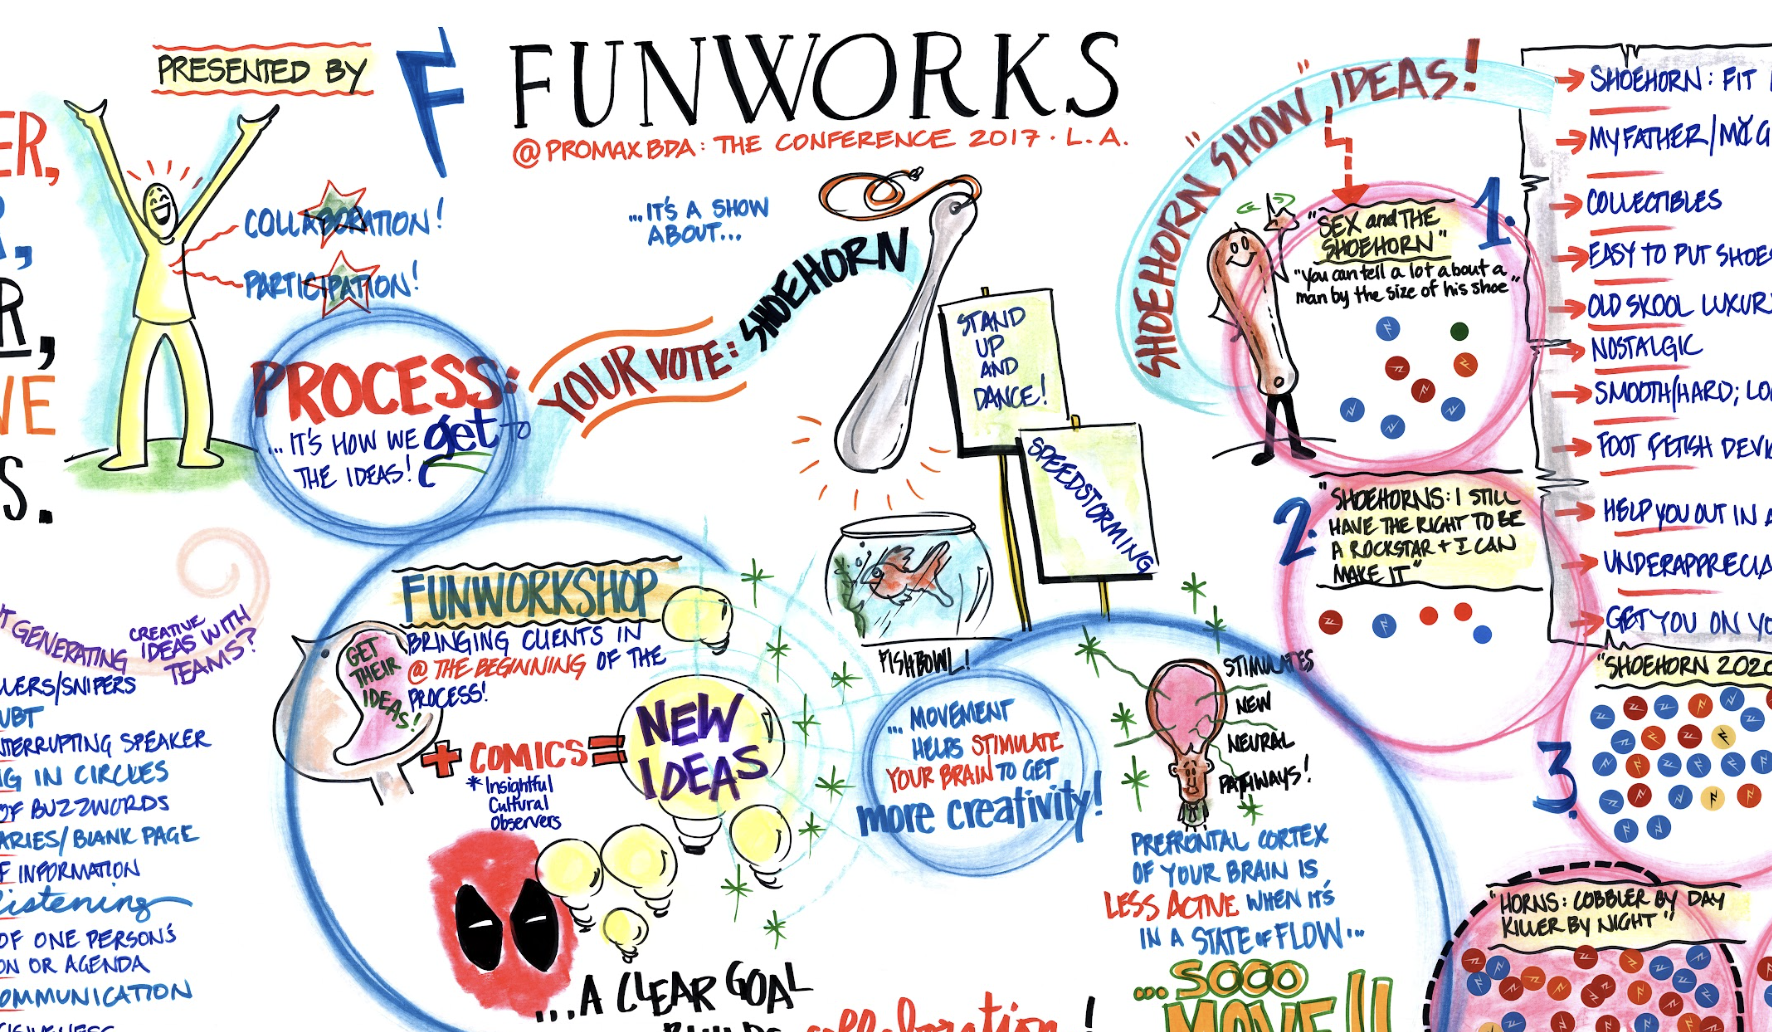 PRESENTED BY
F FUNWORKS
@ PROMAXBDA: THE CONFERENCE 2017 · L.A.
ER,
,
R,
VE
S.
COLLABORATION!
PARTICIPATION!
PROCESS:
...IT'S HOW WE get to
THE IDEAS!
...IT'S A SHOW
ABOUT...
YOUR VOTE: SHOEHORN
STAND
UP
AND
DANCE!
SPEEDSTORMING
FISHBOWL!
"SHOEHORN "SHOW" IDEAS!
1.
"SEX and THE
SHOEHORN"
"you can tell a lot about a
man by the size of his shoe"
2.
"SHOEHORNS: I STILL
HAVE THE RIGHT TO BE
A ROCKSTAR + I CAN
MAKE IT"
3.
"SHOEHORN 2020
"HORNS: COBBLER BY DAY
KILLER BY NIGHT"
→ SHOEHORN: FIT
→ MY FATHER/MY G
→ COLLECTIBLES
→ EASY TO PUT SHOES
→ OLD SKOOL LUXUR
→ NOSTALGIC
→ SMOOTH/HARD; LO
→ FOOT FETISH DEVI
→ HELP YOU OUT IN A
→ UNDERAPPRECIA
→ GET YOU ON YO
T GENERATING
CREATIVE
IDEAS WITH
TEAMS?
LLERS/SNIPERS
UBT
NTERRUPTING SPEAKER
G IN CIRCLES
OF BUZZWORDS
ARIES/BLANK PAGE
F INFORMATION
Listening
OF ONE PERSON'S
ON OR AGENDA
OMMUNICATION
CISIVENESS
FUNWORKSHOP
BRINGING CLIENTS IN
@ THE BEGINNING OF THE
PROCESS!
GET
THEIR
IDEAS!
+ COMICS =
* Insightful
Cultural
Observers
NEW
IDEAS
...A CLEAR GOAL
BUILDS
collaboration!
...MOVEMENT
HELPS STIMULATE
YOUR BRAIN TO GET
more creativity!
STIMULATES
NEW
NEURAL
PATHWAYS!
PREFRONTAL CORTEX
OF YOUR BRAIN IS
LESS ACTIVE WHEN IT'S
IN A STATE OF FLOW...
...SOOO
MOVE!!